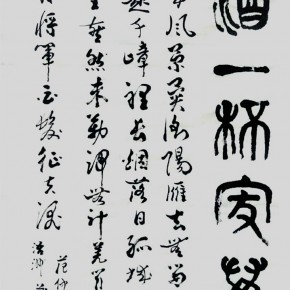 酒一杯家萬
風景異衡陽雁去無留
千嶂裡長煙落日孤城
然未勒歸無計羌管
將軍白髮征夫淚
范仲